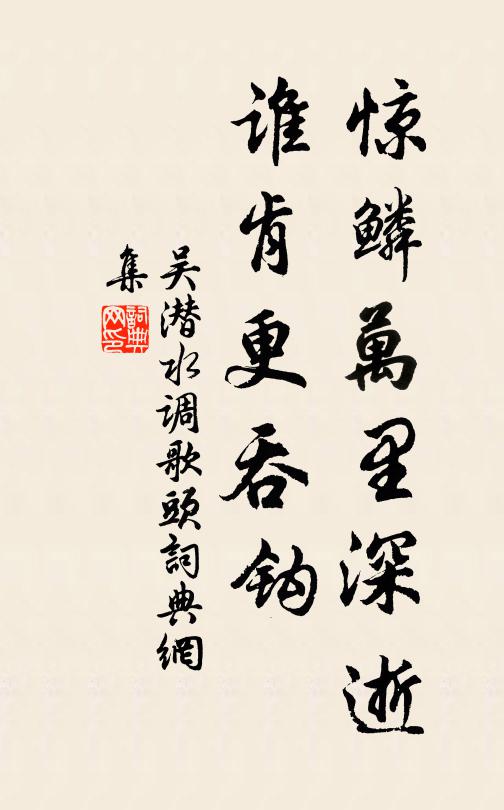 惊鳞萬里深逝
谁肯更吞钩
吴潜水调歌頭詞典網
集
詞典网印